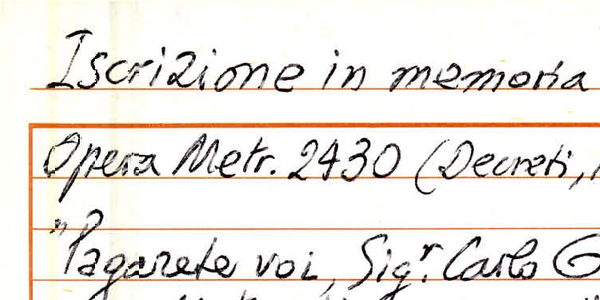 Iscrizione in memoria
Opera Metr. 2430 (Decreti,
"Pagarete voi, Sig.r Carlo G